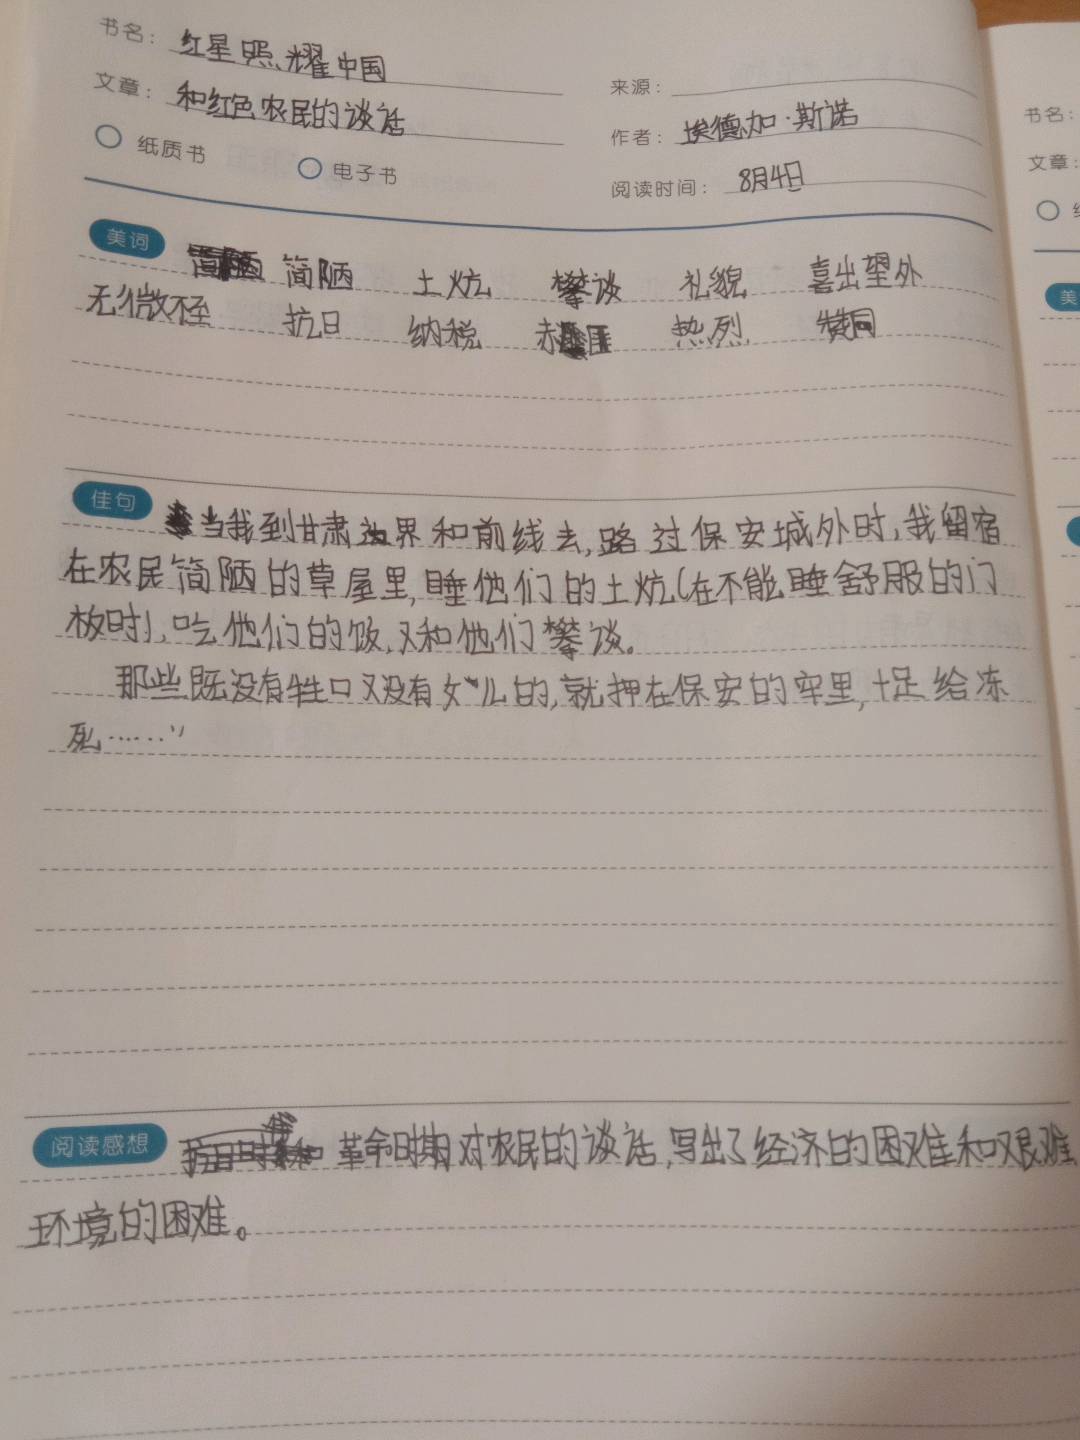 书名： 红星照耀中国
文章： 和红色农民的谈话
纸质书 电子书
来源：
作者： 埃德加·斯诺
阅读时间： 8月4日
美词 简陋 土炕 攀谈 礼貌 喜出望外
无微不至 抗日 纳税 赤匪 热烈 赞同
佳句 当我到甘肃边界和前线去,路过保安城外时,我留宿
在农民简陋的草屋里,睡他们的土炕(在不能睡舒服的门
板时)、吃他们的饭,又和他们攀谈。
那些既没有牲口又没有女儿的,就押在保安的牢里,十足给冻
死……"
阅读感想 革命时期对农民的谈话,写出了经济的困难和艰难
环境的困难。
书名：
文章：
美